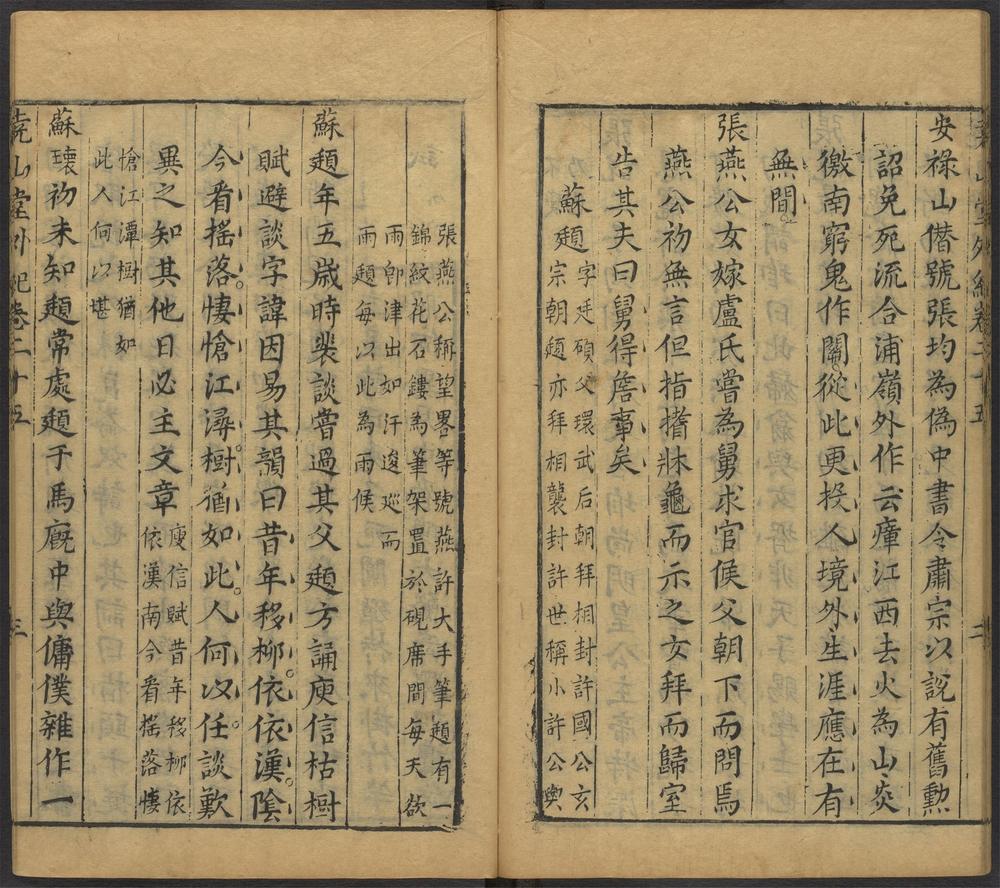 安祿山僣號張均為偽中書令肅宗以說有舊勲
詔免死流合浦嶺外作云瘴江西去火為山炎
徼南窮鬼作關從此更投人境外生涯應在有
無間
張燕公女嫁盧氏嘗為舅求官候父朝下而問焉
燕公初無言但指搘牀龜而示之女拜而歸室
告其夫曰舅得詹事矣
蘇頲
字廷碩父環武后朝拜相封許國公玄
宗朝頲亦拜相襲封許世稱小許公與
張燕公稱望畧等號燕許大手筆頲有一
錦紋花石鏤為筆架置於硯席間每天欲
雨卽津出如汗逡巡而
雨頲每以此為雨候
蘇頲年五歲時裴談嘗過其父頲方誦庾信枯樹
賦避談字諱因易其韻曰昔年移柳依依漢陰
今看搖落悽愴江潯樹猶如此人何以任談歎
異之知其他日必主文章
庾信賦昔年移柳依
依漢南今看搖落悽
愴江潭樹猶如
此人何以堪
蘇瓌初未知頲常處頲于馬廐中與傭僕雜作一
堯山堂外紀卷二十五
三